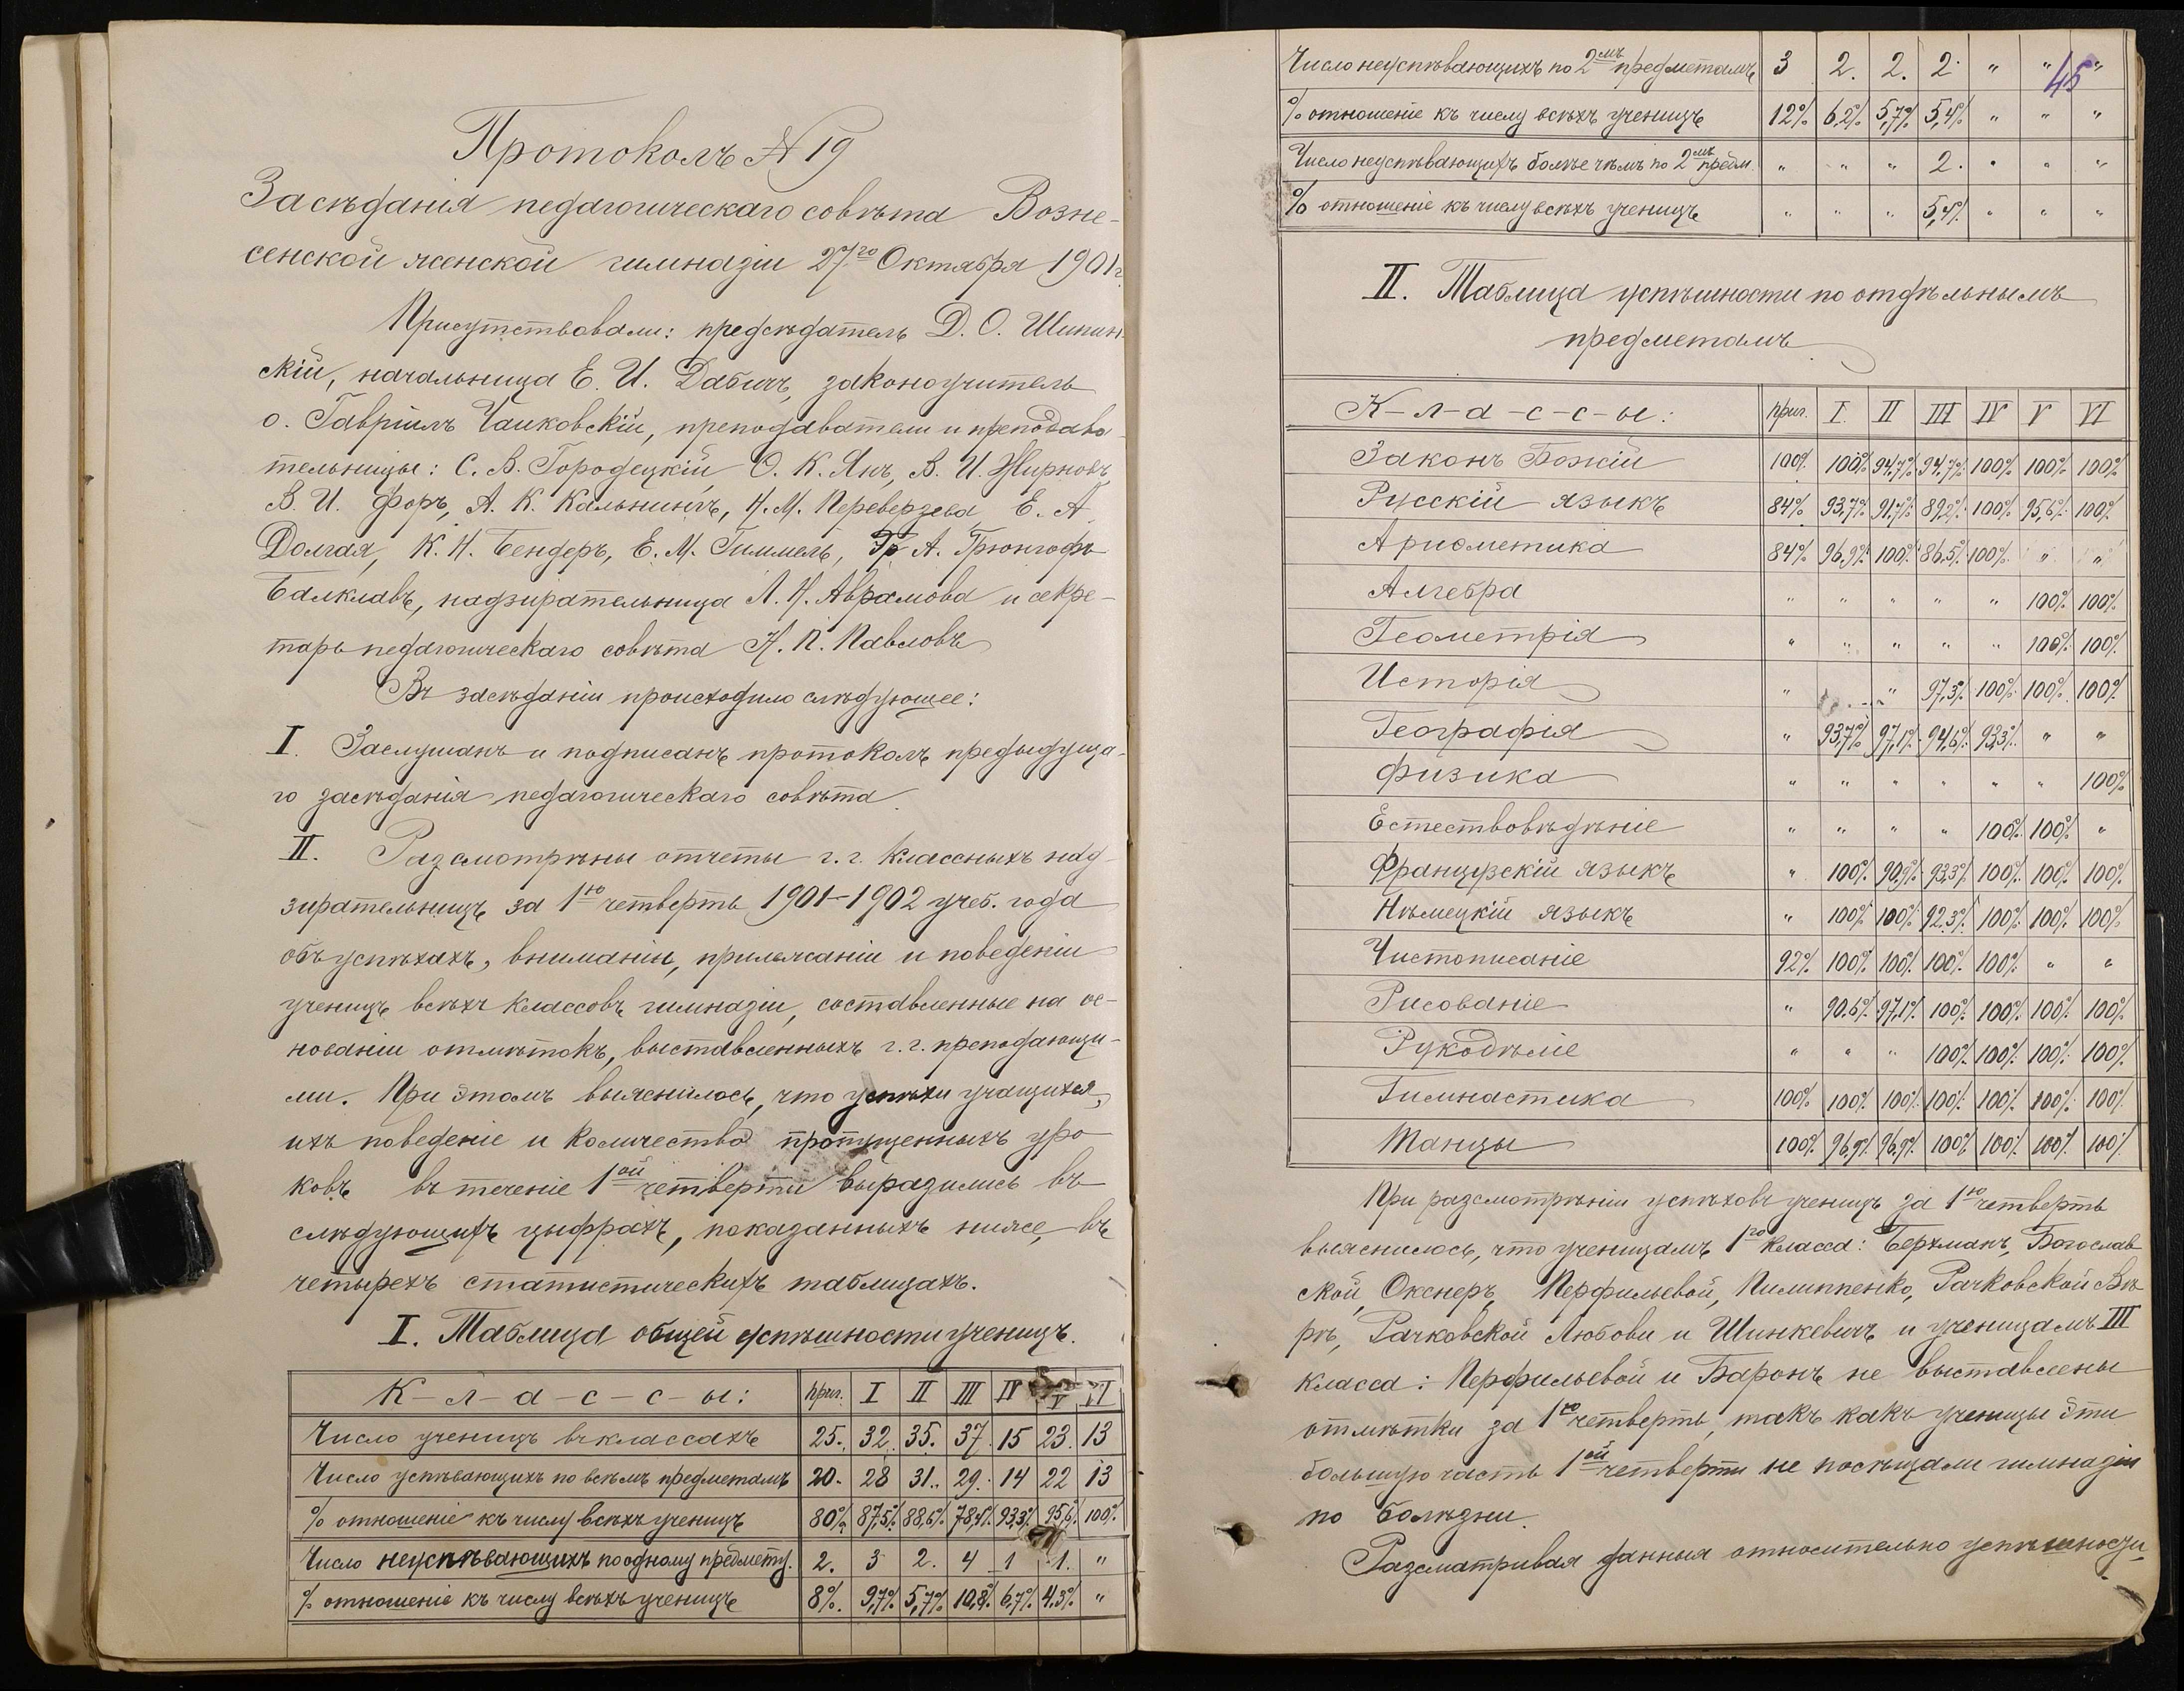 Протоколъ № 19
Засѣданія педагогическаго совѣта Возне-
сенской женской гимназіи 27го Октября 1901 г.
Присутствовали: предсѣдатель Д. О. Шипин-
скій, начальница Е. И. Дабичъ, законоучитель
о. Гавріилъ Чайковскій, преподаватели и преподава-
тельницы: С. В. Городецкій, О. К. Янъ, В. И. Жирновъ,
В. И. Форъ, А. К. Кальнингъ, Н. М. Переверзева Е. А.
Долгая, К. Н. Бендеръ, Е. М. Гиммель, А. Грюнгофъ
Балклавъ, надзирательница Л. Н. Аврамова и секре-
тарь педагогическаго совѣта Н. П. Павловъ
Въ засѣданіи происходило слѣдующее:
I. Заслушанъ и подписанъ протоколъ предыдуща-
го засѣданія педагогическаго совѣта.
II. Разсмотрѣны отчеты г.г. классныхъ над-
зирательницъ за 1ю четверть 1901-1902 учеб. года
объ успѣхахъ, вниманіи, прилежаніи и поведеніи
ученицъ всѣхъ классовъ гимназіи, составленные на ос-
нованіи отмѣтокъ, выставленныхъ г.г. преподающи-
ми. При этомъ выяснилось, что успѣхи учащихся,
ихъ поведеніе и количество пропущенныхъ уро-
ковъ въ теченіе 1ой четверти выразились въ
слѣдующихъ цыфрахъ, показанныхъ ниже, въ
четырехъ статистическихъ таблицахъ.
I. Таблица общей успѣшности ученицъ.
К-л-а-с-с-ы: приг. I II III IV V VI
Число ученицъ въ классахъ 25. 32. 35. 37. 15 23. 13
Число успѣвающихъ по всѣмъ предметамъ 20. 28 31. 29. 14 22 13
% отношеніе къ числу всѣхъ ученицъ 80% 87,5% 88,6% 78,4% 93,3% 95,6% 100%
Число неуспѣвающихъ по одному предмету. 2. 3 2. 4 1 1. "
% отношеніе къ числу всѣхъ ученицъ 8%. 9,7% 5,7% 10,8% 6,7% 4,3% "
45
Число неуспѣвающихъ по 2мъ предметамъ 3 2. 2. 2. " " "
% отношеніе къ числу всѣхъ ученицъ 12% 6,2% 5,7% 5,4% " " "
Число неуспѣвающихъ болѣе чѣмъ по 2мъ предм. " " " 2. " " "
% отношеніе къ числу всѣхъ ученицъ " " " 5,4% " " "
II. Таблица успѣшности по отдѣльнымъ
предметамъ.
К-л-а-с-с-ы: приг. I. II III IV V VI
Законъ Божій 100% 100% 94,7% 94,7% 100% 100% 100%
Русскій языкъ 84% 93,7% 91,4% 89,2% 100% 95,6% 100%
Ариѳметика 84% 96,9% 100% 86,5% 100% " "
Алгебра " " " " " 100% 100%
Геометрія " " " " " 100% 100%
Исторія " " " 97,3% 100% 100% 100%
Географія " 93,7% 97,1% 94,6% 93,3% " "
Физика " " " " " " 100%
Естествовѣдѣніе " " " " 100% 100% "
Французскій языкъ " 100% 90,9% 93,3% 100% 100% 100%
Нѣмецкій языкъ " 100% 100% 92,3% 100% 100% 100%
Чистописаніе 92% 100% 100% 100% 100% " "
Рисованіе " 90,6% 97,1% 100% 100% 100% 100%
Рукодѣліе " " " 100% 100% 100% 100%
Гимнастика 100% 100% 100% 100% 100% 100% 100%
Танцы 100% 96,9% 96,9% 100% 100% 100% 100%
При разсмотрѣніи успѣховъ ученицъ за 1ю четверть
выяснилось, что ученицамъ 1го класса: Берхманъ, Богослав-
ской, Окснеръ, Перфильевой, Пилиппенко, Рачковской Вѣ-
рѣ, Рачковской Любови и Шинкевичъ и ученицамъ III
класса: Перфильевой и Баронъ не выставлены
отмѣтки за 1ю четверть, такъ какъ ученицы эти
большую часть 1ой четверти не посѣщали гимназіи
по болѣзни.
Разсматривая данныя относительно успѣшности